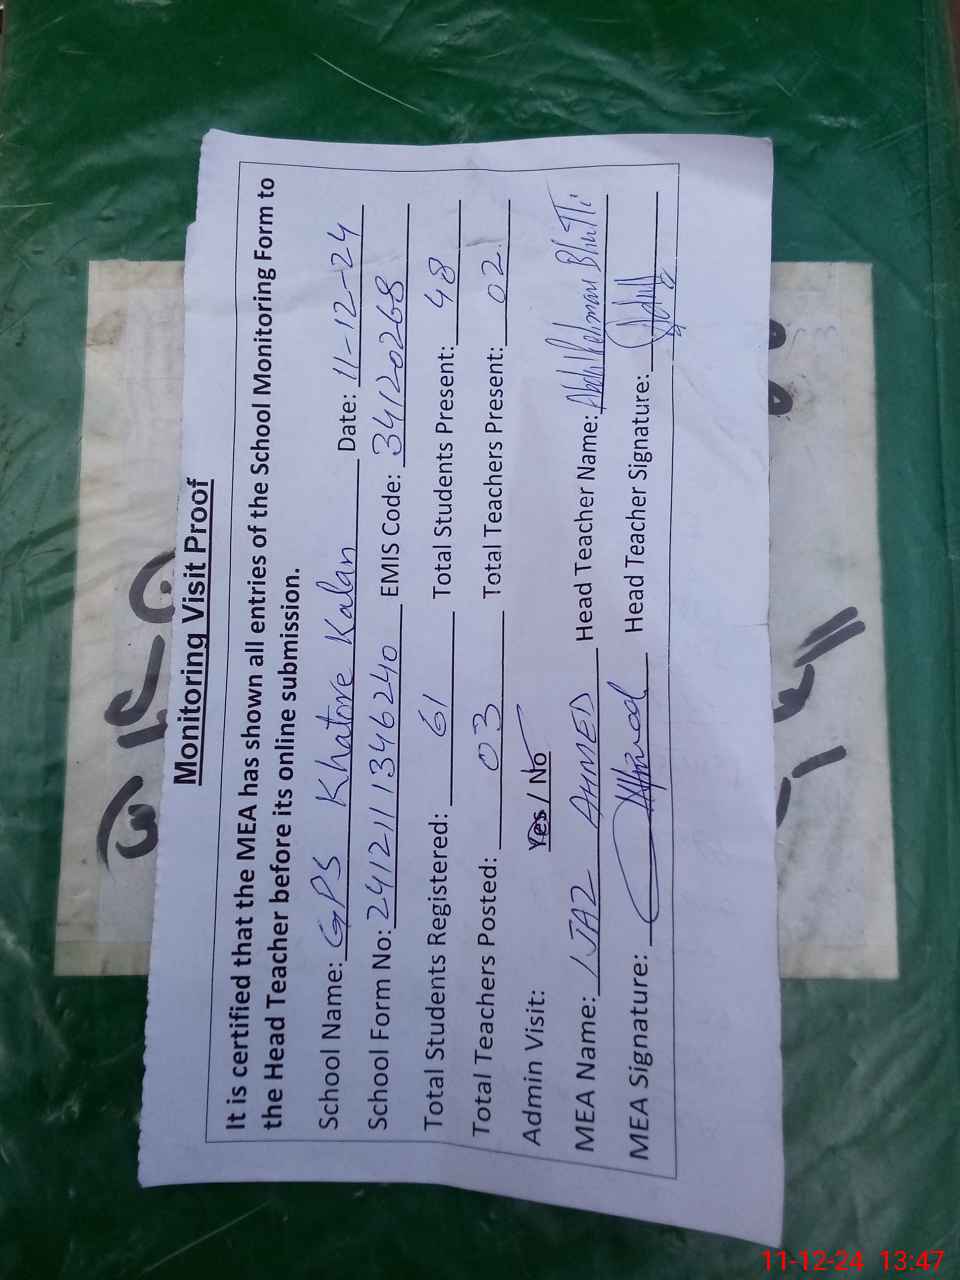 Monitoring Visit Proof
It is certified that the MEA has shown all entries of the School Monitoring Form to
the Head Teacher before its online submission.
School Name: GPS Khatore Kalan Date: 11-12-24
School Form No: 241211346240 EMIS Code: 34120268
Total Students Registered: 61 Total Students Present: 48
Total Teachers Posted: 03 Total Teachers Present: 02
Admin Visit: Yes / No
MEA Name: IJAZ AHMED Head Teacher Name: Abdul Rehman Bhutti
MEA Signature: Head Teacher Signature:
11-12-24 13:47